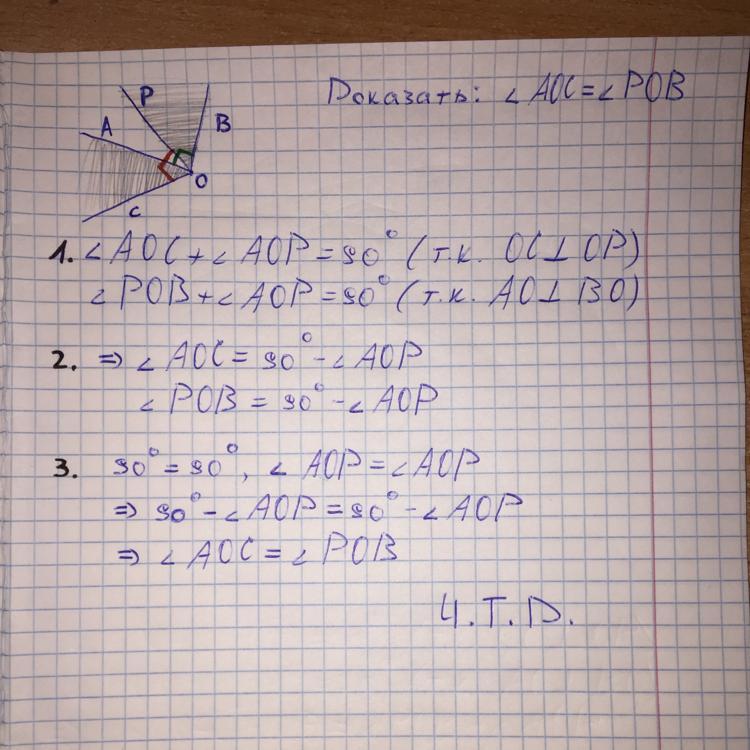 P
B
A
O
C
Доказать: ∠ AOC = ∠ POB
1. ∠ AOC + ∠ AOP = 90° (т.к. OC ⊥ OP)
∠ POB + ∠ AOP = 90° (т.к. AO ⊥ BO)
2. ⇒ ∠ AOC = 90° - ∠ AOP
∠ POB = 90° - ∠ AOP
3. 90° = 90°, ∠ AOP = ∠ AOP
⇒ 90° - ∠ AOP = 90° - ∠ AOP
⇒ ∠ AOC = ∠ POB
Ч.Т.D.